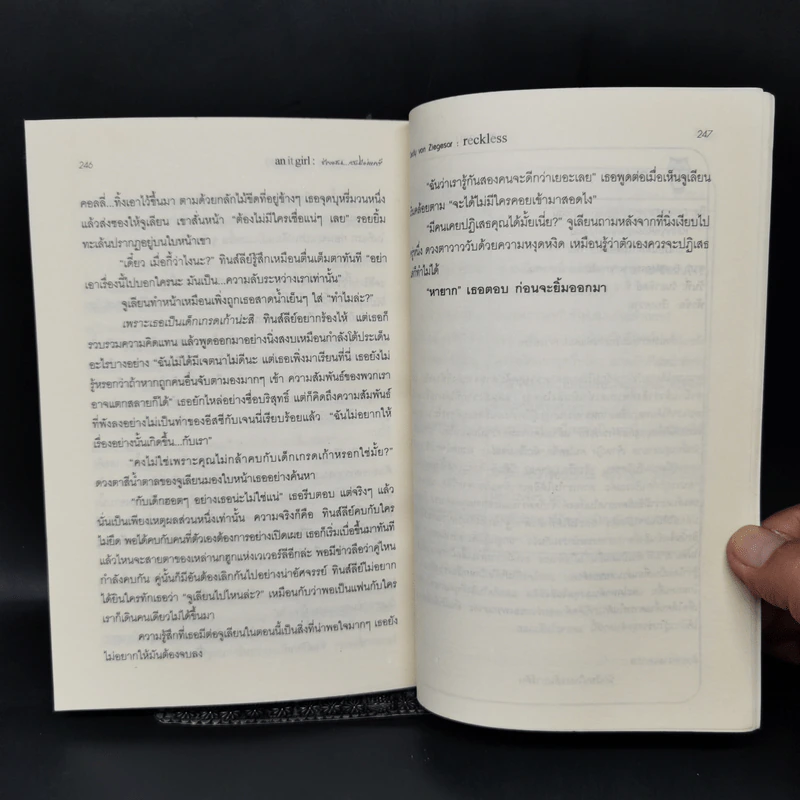 246
an it girl :
คอลลี่...ทิ้งเอาไว้ขึ้นมา ตามด้วยกลักไม้ขีดที่อยู่ข้างๆ เธอจุดบุหรี่มวนหนึ่ง
แล้วส่งของให้จูเลียน เขาสั่นหน้า “ต้องไม่มีใครเชื่อแน่ๆ เลย” รอยยิ้ม
ทะเล้นปรากฏอยู่บนใบหน้าเขา
“เดี๋ยว เมื่อกี้ว่าไงนะ?” ทินส์ลีย์รู้สึกเหมือนตื่นเต็มตาทันที “อย่า
เอาเรื่องนี้ไปบอกใครนะ มันเป็น...ความลับระหว่างเราเท่านั้น”
จูเลียนทำหน้าเหมือนเพิ่งถูกเธอสาดน้ำเย็นๆ ใส่ “ทำไมล่ะ?”
เพราะเธอเป็นเด็กเกรดเก้าน่ะสิ ทินส์ลีย์อยากร้องไห้ แต่เธอก็
รวบรวมความคิดแทน แล้วพูดออกมาอย่างนิ่งสงบเหมือนกำลังโต้ประเด็น
อะไรบางอย่าง “ฉันไม่ได้มีเจตนาไม่ดีนะ แต่เธอเพิ่งมาเรียนที่นี่ เธอยังไม่
รู้หรอกว่าถ้าหากถูกคนอื่นจับตามองมากๆ เข้า ความสัมพันธ์ของพวกเรา
อาจแตกสลายก็ได้” เธอยักไหล่อย่างซื่อบริสุทธิ์ แต่ก็คิดถึงความสัมพันธ์
ที่พังลงอย่างไม่เป็นท่าของอีสซีกับเจนนี่เรียบร้อยแล้ว “ฉันไม่อยากให้
เรื่องอย่างนั้นเกิดขึ้น...กับเรา”
“คงไม่ใช่เพราะคุณไม่กล้าคบกับเด็กเกรดเก้าหรอกใช่มั้ย?”
ดวงตาสีน้ำตาลของจูเลียนมองใบหน้าเธออย่างค้นหา
“กับเด็กฮอตๆ อย่างเธอน่ะไม่ใช่แน่” เธอรีบตอบ แต่จริงๆ แล้ว
นั่นเป็นเพียงเหตุผลส่วนหนึ่งเท่านั้น ความจริงก็คือ ทินส์ลีย์คบกับใคร
ไม่ยืด พอได้คบกับคนที่ตัวเองต้องการอย่างเปิดเผย เธอก็เริ่มเบื่อขึ้นมาทันที
แล้วไหนจะสายตาของเหล่านกฮูกแห่งเวเวอร์ลีอีกล่ะ พอมีข่าวลือว่าคู่ไหน
กำลังคบกัน คู่นั้นก็มีอันต้องเลิกกันไปอย่างน่าอัศจรรย์ ทินส์ลีย์ไม่อยาก
ได้ยินใครทักเธอว่า “จูเลียนไปไหนล่ะ?” เหมือนกับว่าพอเป็นแฟนกับใคร
เราก็เดินคนเดียวไม่ได้ขึ้นมา
ความรู้สึกที่เธอมีต่อจูเลียนในตอนนี้เป็นสิ่งที่น่าพอใจมากๆ เธอยัง
ไม่อยากให้มันต้องจบลง
von Ziegesar : reckless
247
“ฉันว่าเรารู้กันสองคนจะดีกว่าเยอะเลย” เธอพูดต่อเมื่อเห็นจูเลียน
คล้อยตาม “จะได้ไม่มีใครคอยเข้ามาสอดไง”
“มีคนเคยปฏิเสธคุณได้มั้ยเนี่ย?” จูเลียนถามหลังจากที่นิ่งเงียบไป
ดวงตาวาววับด้วยความหงุดหงิด เหมือนรู้ว่าตัวเองควรจะปฏิเสธ
ทำไม่ได้
“หายาก” เธอตอบ ก่อนจะยิ้มออกมา